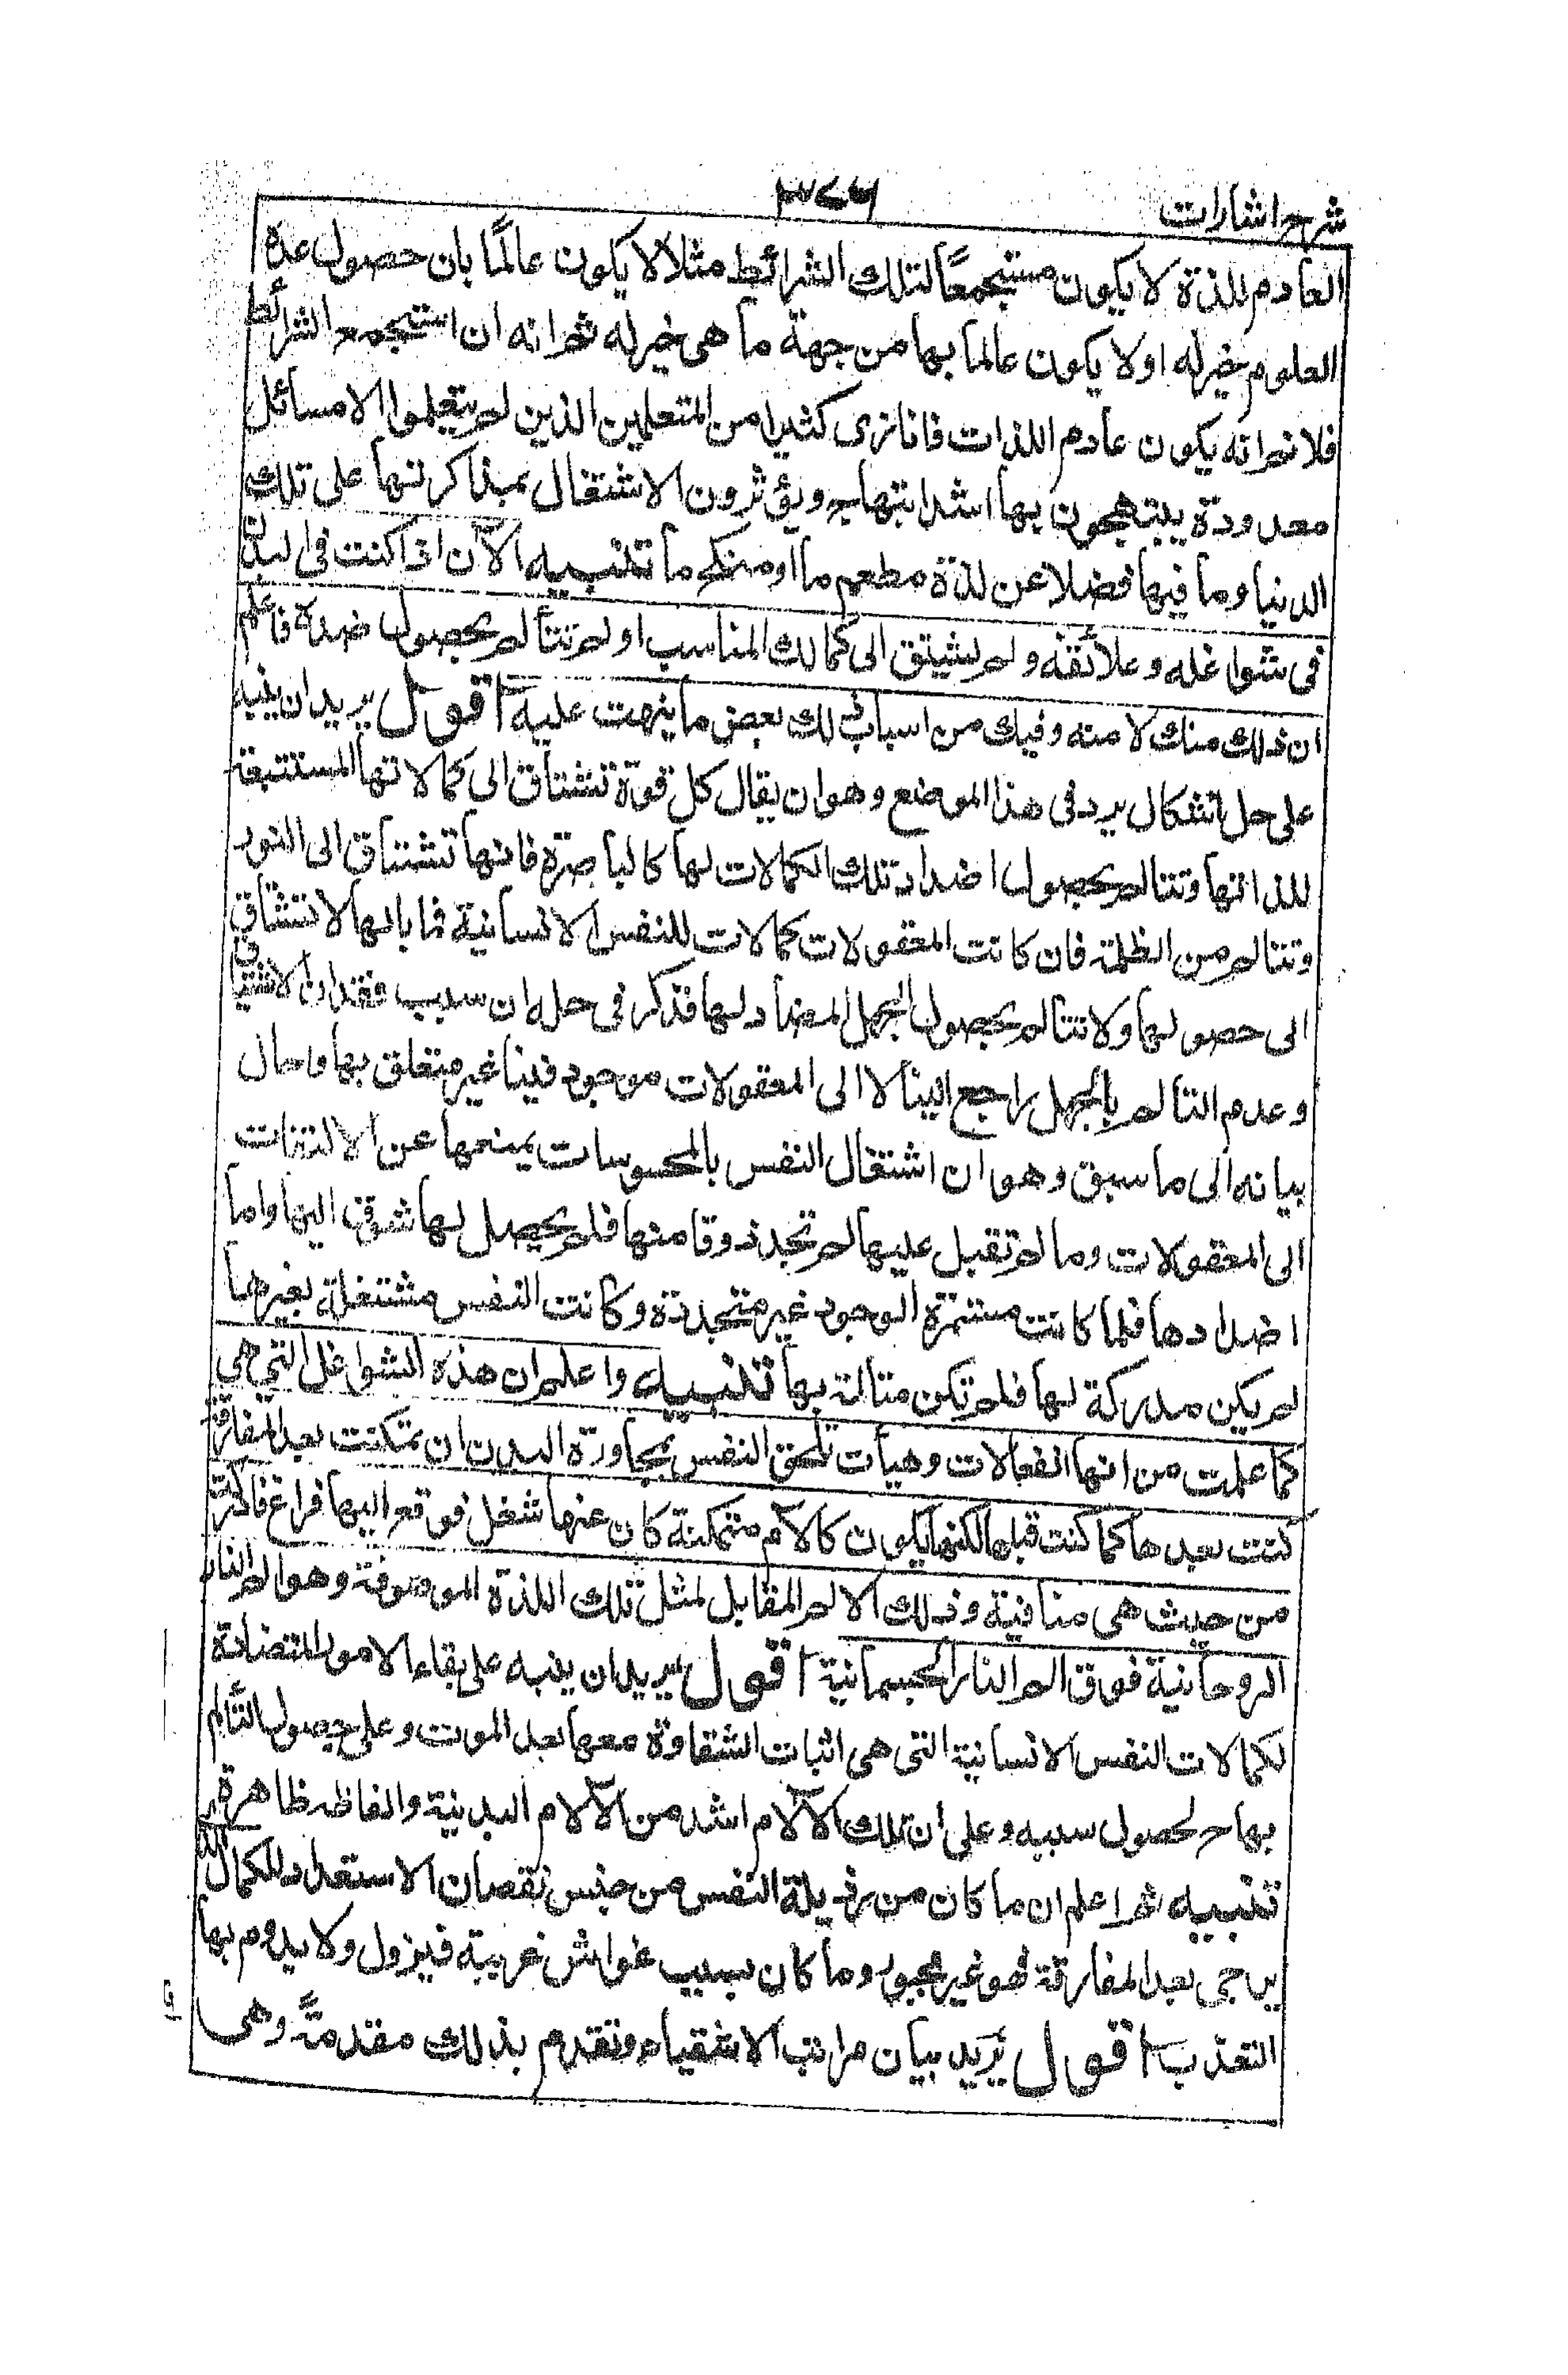 شرح اشارات
٣٧٦
العادم للذة لا يكون مستجمعًا لتلك الشرائط مثلا لا يكون عالمًا بان حصول عدة
العلوم خير له او لا يكون عالما بها من جهة ما هى خير له ثم انه ان استجمع الشرائط
فلا نم انه يكون عادم اللذات فانا نرى كثيرا من المتعلمين الذين لم يتعلموا الا مسائل
معدودة يبتهجون بها اشد ابتهاج ويؤثرون الاشتغال بمذاكرتها على تلك
الدنيا وما فيها فضلا عن لذة مطعم ما او منكح ما تنبيه الآن اذا كنت فى البدن
فى شواغله وعلائقه ولم تشتق الى كمالك المناسب او لم تتألم بحصول ضده فاعلم
ان ذلك منك لا منه وفيك من اسباب ذلك بعض ما ينهت عليه اقول يريد ان ينبه
على حل اشكال يرد فى هذا الموضع وهو ان يقال كل قوة تشتاق الى كمالاتها المستتبعة
للذاتها وتتالم بحصول اضداد تلك الكمالات لها كالباصرة فانها تشتاق الى النور
وتتالم من الظلمة فان كانت المعقولات كمالات للنفس الانسانية فما بالها لا تشتاق
الى حصولها ولا تتالم بحصول الجهل المضاد لها فذكر فى حله ان سبب فقدان الاشتياق
وعدم التالم بالجهل راجع الينا لا الى المعقولات موجود فينا غير متعلق بها واحال
بيانه الى ما سبق وهو ان اشتغال النفس بالمحسوسات يمنعها عن الالتفات
الى المعقولات وما لم تقبل عليها لم تجد ذوقا منها فلم يحصل لها شوق اليها واما
اضدادها فلما كانت مستمرة الوجود غير متجددة وكانت النفس مشتغلة بغيرها
لم يكن مدركة لها فلم تكن متالمة بها تنبيه واعلم ان هذه الشواغل التى هى
كما علمت من انها انفعالات وهيأت تلحق النفس بمجاورة البدن ان تمكنت بعد المفارقة
كنت بعدها كما كنت قبلها لكنها يكون كآلام متمكنة كان عنها شغل فوقع اليها فراغ فادركت
من حيث هى منافية وذلك الالم المقابل لمثل تلك اللذة الموصوفة وهو الم النار
الروحانية فوق الم النار الجسمانية اقول يريد ان ينبه على بقاء الامور المتضادة
لكمالات النفس الانسانية التى هى اثبات الشقاوة معها بعد الموت وعلى حصول التألم
بها ح لحصول سببه وعلى ان تلك الآلام اشد من الآلام البدنية والفاظه ظاهرة
تنبيه ثم اعلم ان ما كان من رذيلة النفس من جنس نقصان الاستعداد للكمال الذى
يرجى بعد المفارقة فهو غير مجبور وما كان بسبب غواش غريبة فيزول ولا يدوم بها
التعذب اقول يريد بيان مراتب الاشقياء وتقدم بذلك مقدمة وهى